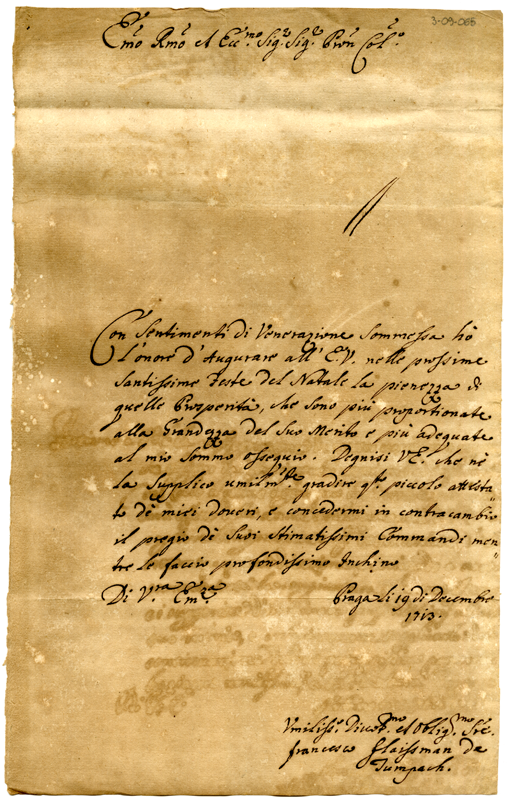 3-09-066
Em̃o Rm̃o et Ecc.mo Sig.r Sig.r Pron Col.o
Con Sentimenti di Venerazione Sommessa hò
l'onore d'Augurare all'E.V. nelle prossime
Santissime Feste del Natale la pienezza di
quelle Prosperità, che sono più proportionate
alla Grandezza del Suo Merito e più adequate
al mio Sommo ossequio. Degnisi V.E. che nè
la Supplico umilm.te gradire q.to piccolo attesta"
to de miei doveri, e concedermi in contracambio
il pregio dè Suoi Stimatissimi Commandi men"
tre le faccio profondissimo Inchino
Di V.ra Em.za Praga li 19 di Decembre
1713.
Vmiliss.o Divot.mo et Obblig.mo Sre.
francesco Glaissman de
Tumpach.